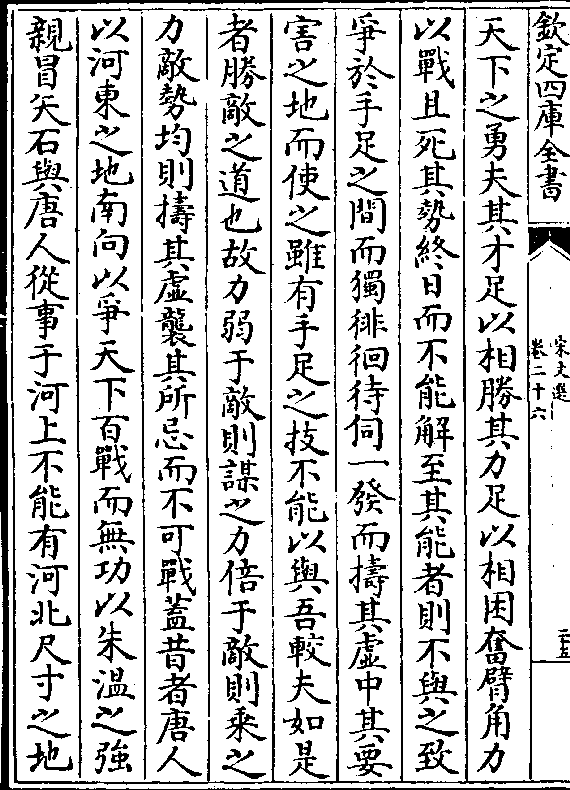 欽定四庫全書
宋文選
卷二十六
二五
天下之勇夫其才足以相勝其力足以相困奮臂角力
以戰且死其勢終日而不能解至其能者則不與之致
爭於手足之間而獨徘徊待伺一發而擣其虛中其要
害之地而使之雖有手足之技不能以與吾較夫如是
者勝敵之道也故力弱于敵則謀之力倍于敵則乘之
力敵勢均則擣其虛襲其所忌而不可戰蓋昔者唐人
以河東之地南向以爭天下百戰而無功以朱溫之強
親冒矢石與唐人從事于河上不能有河北尺寸之地